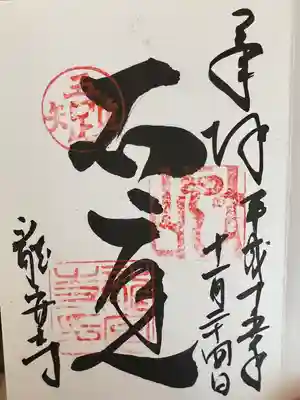 奉拝
平成十五年
十一月二十四日
石庭
龍安寺